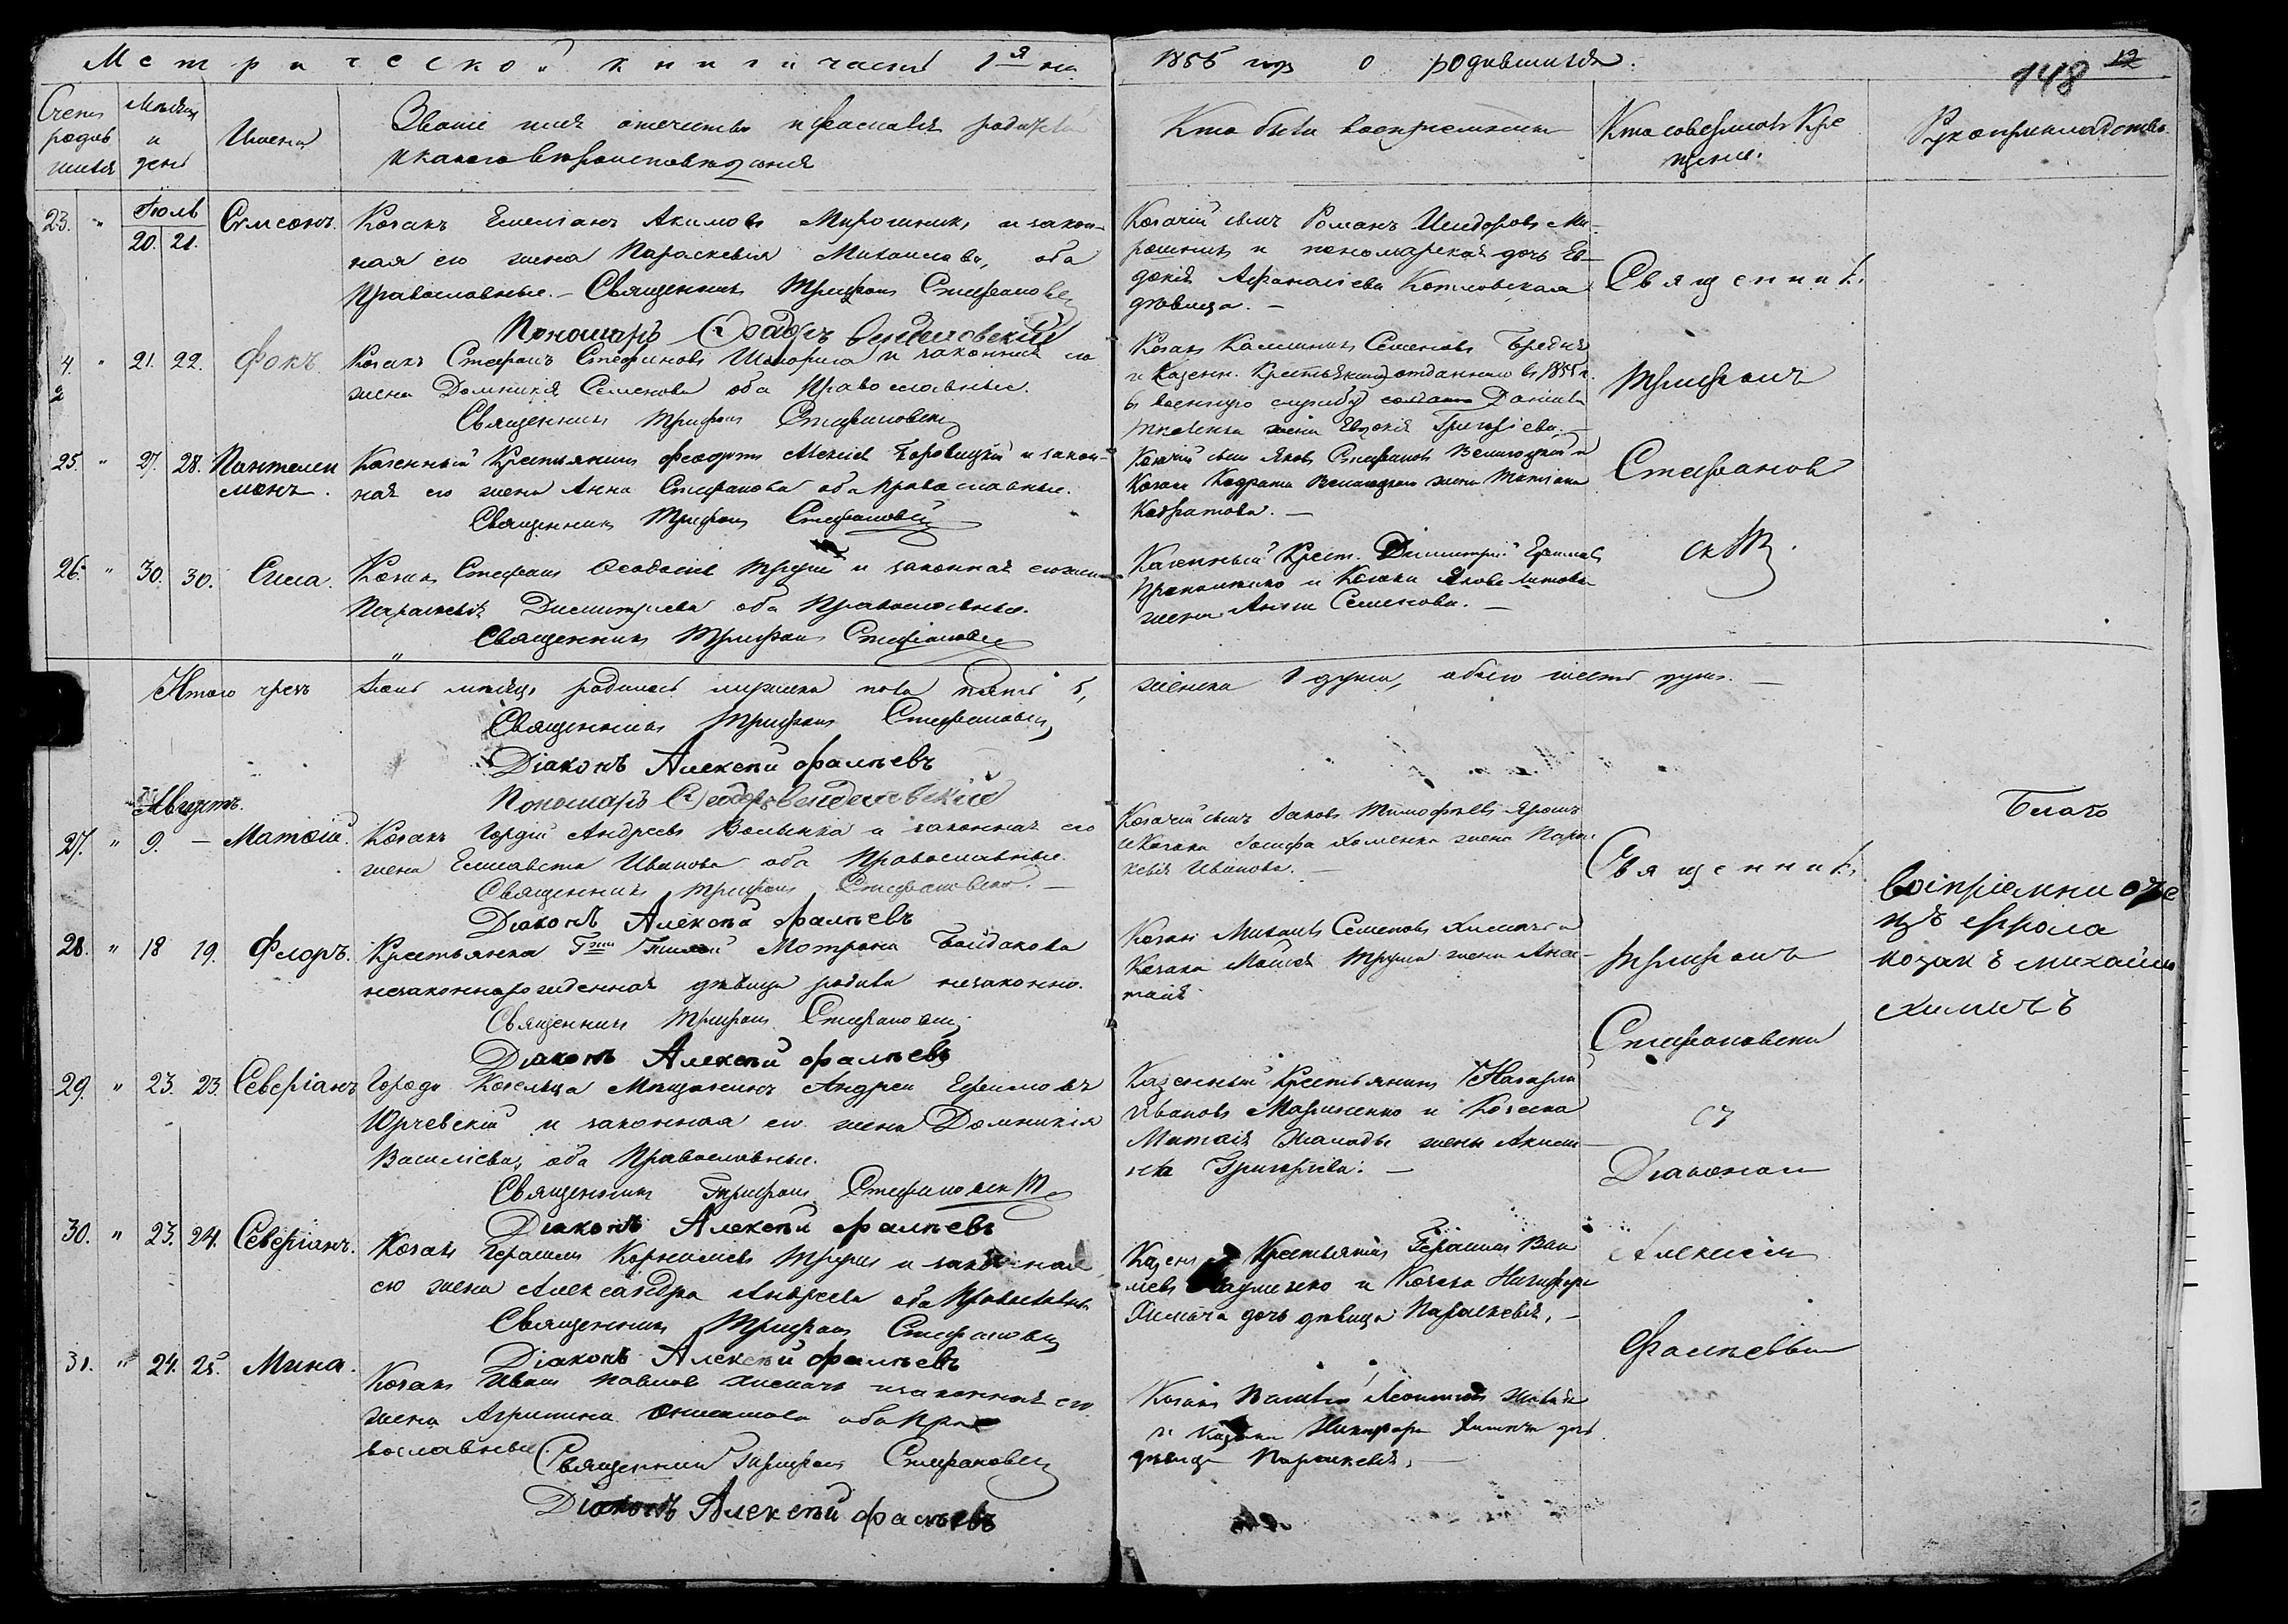 Метрической книги часть 1я на
1855 годъ о родившихся.
148 12
Счетъ родив шихся
Месяц и день
Имена
Званіе имя отечество и фамилія родителей
и какого вероисповеданія
Кто были воспріемники
Кто совершалъ Кре
щеніе.
Рукоприкладство
23. " Іюль 20. 21. Симсонъ.
Козакъ Емеліанъ Акимовъ Мирошникъ и закон-
ная его жена Параскевія Михаилова, оба
Православные. — Священникъ Трифонъ Стефановскій
Пономаръ
Козачій сынъ Романъ Исидоровъ Ми-
рошникъ и пономарская дочь Ев-
докія Афанасіева Котловская
девица. —
Священникъ
4. " 21. 22. Фокъ
2
Козакъ Стефанъ Стефановъ и законная его
жена Домникія Семенова оба Православные.
Священникъ Трифонъ Стефановскій
Козакъ Калиникъ Семеновъ
и Казенн. отданнаго в 1855 г.
в военную службу Даніила
жена Евдокія Григоріева. —
Трифонъ
25. " 27. 28. Пантелеи
монъ.
Казенный Крестьянинъ Феодотъ Алексіевъ Боровицкій и закон-
ная его жена Анна Стефанова оба Православные.
Священникъ Трифонъ Стефановскій
Козачій сынъ Яковъ Стефановъ и
Козака Кодрата жена Татіана
Кодратова. —
Стефанов
26. " 30. 30. Сила.
Козакъ Стефанъ Феодосіевъ Трушъ и законная его жена
Параскевія Димитріева оба Православные.
Священникъ Трифонъ Стефановскій
Казенный Крест. Димитрій
и Козака Якова
жена Анна Семенова. —
скій.
Итого чрезъ Іюль месяцъ родилось мужеска пола пять 5,
женска 1 душа, обоего шесть душъ. —
Священникъ Трифонъ Стефановскій
Діаконъ Алексей Фалеевъ
Пономаръ
Августъ.
27. " 9. — Матθій.
Козакъ Гордій Андреевъ Волынка и законная его
жена Елисавета Иванова оба Православные.
Священникъ Трифонъ Стефановскій. —
Діаконъ Алексей Фалеевъ
Козачій сынъ Іаковъ Тимофеевъ Ярошъ
и Козака Іосифа Хоменка жена Парас
кевія Иванова. —
Священникъ
28. " 18 19. Флоръ.
Крестьянка Мотрона Байдакова
незаконнорожденная девица родила незаконно.
Священникъ Трифонъ Стефановскій
Діаконъ Алексей Фалеевъ
Козакъ Михаилъ Семеновъ Химичъ и
Козака Моисея Труша жена Анас-
тасія
Трифонъ
Стефановскій
воспріемни оте
цъ Фрола
козакъ михаилъ
химичъ
29. " 23. 23. Северіанъ
Города Козельца Мещанинъ Андрей Ефимовъ
Юрчевскій и законная его жена Домникія
Василіева, оба Православные.
Священникъ Трифонъ Стефановскій
Діаконъ Алексей Фалеевъ
Казенный Крестьянинъ
Ивановъ Мариненко и Козака
Матθія жена Акили-
на Григоріева. —
съ
Діакономъ
30. " 23. 24. Северіанъ.
Козакъ Герасимъ Корниліевъ Трушъ и законная
его жена Александра Андреева оба Православные
Священникъ Трифонъ Стефановскій
Діаконъ Алексей Фалеевъ
Казен Крестьянинъ Герасимъ Васи
ліевъ и Козака Никифора
Химича дочь девица Параскевія. —
Алексіемъ
Фалеевымъ
31. " 24. 25. Мина.
Козакъ Иванъ Павловъ Химичъ и законная его
жена Агрипина оба Пра
вославные. Священникъ Трифонъ Стефановскій
Діаконъ Алексей Фалеевъ
Козакъ
и Козака Никифора Химича дочь
девица Параскевія. —